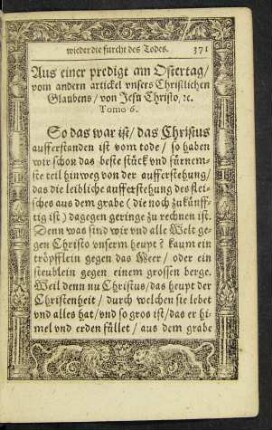 wieder die furcht des Todes. 371
Aus einer predigt am Ostertag/
vom andern artickel vnsers Christlichen
Glaubens/ von Jesu Christo, ꝛc.
Tomo 6.
So das war ist/ das Christus
aufferstanden ist vom tode/ so haben
wir schon das beste stück vnd fürnem-
ste teil hinweg von der aufferstehung/
das die leibliche aufferstehung des flei-
sches aus dem grabe (die noch zukünff-
tig ist) dagegen geringe zu rechnen ist.
Denn was sind wir vnd alle Welt ge-
gen Christo vnserm heupt? kaum ein
tröpfflein gegen das Meer/ oder ein
steublein gegen einem grossen berge.
Weil denn nu Christus/ das heupt der
Christenheit/ durch welchen sie lebet
vnd alles hat/ vnd so gros ist/ das er hi-
mel vnd erden füllet/ aus dem grabe